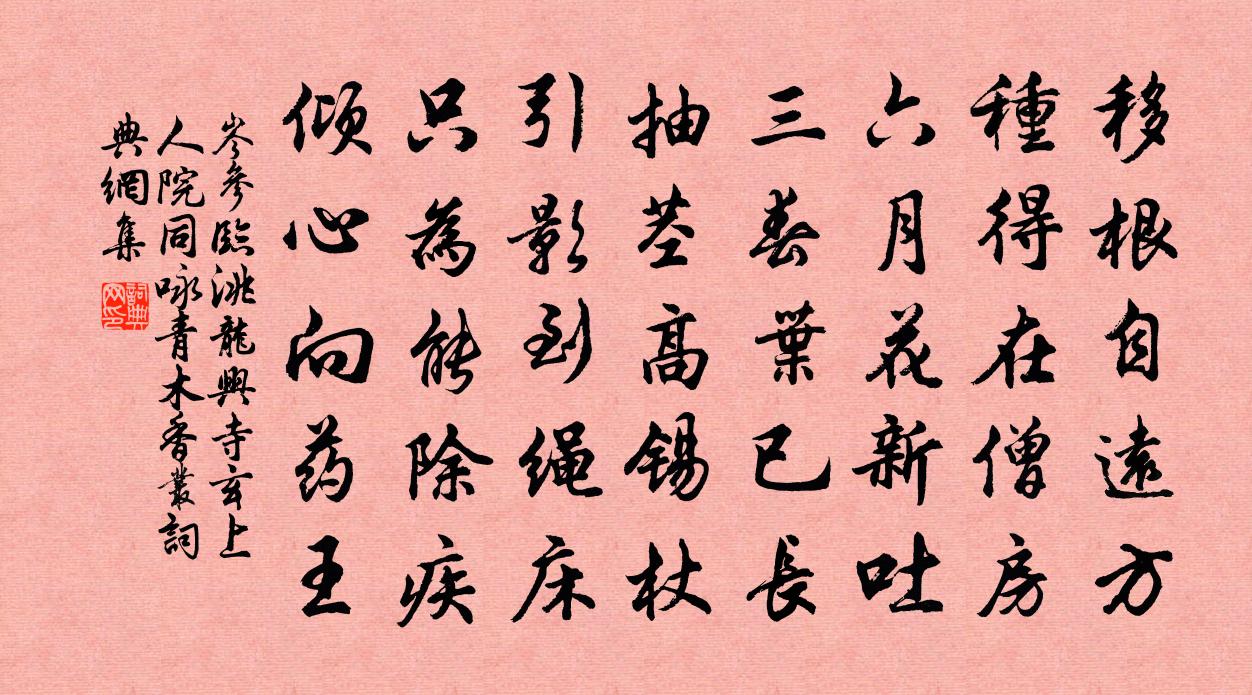 移根自遠方
種得在僧房
六月花新吐
三春葉已長
抽茎高锡杖
引影到绳床
只為能除疾
倾心向药王
岑參臨洮龍興寺玄上
人院同咏青木香叢詞
典網集
詞典网印